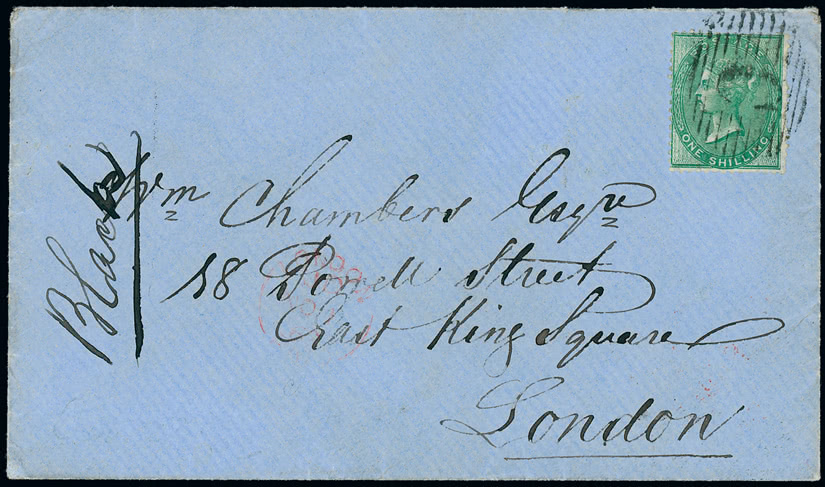 Wm Chambers Esqre
18 Powell Street
East King Square
London
ONE SHILLING